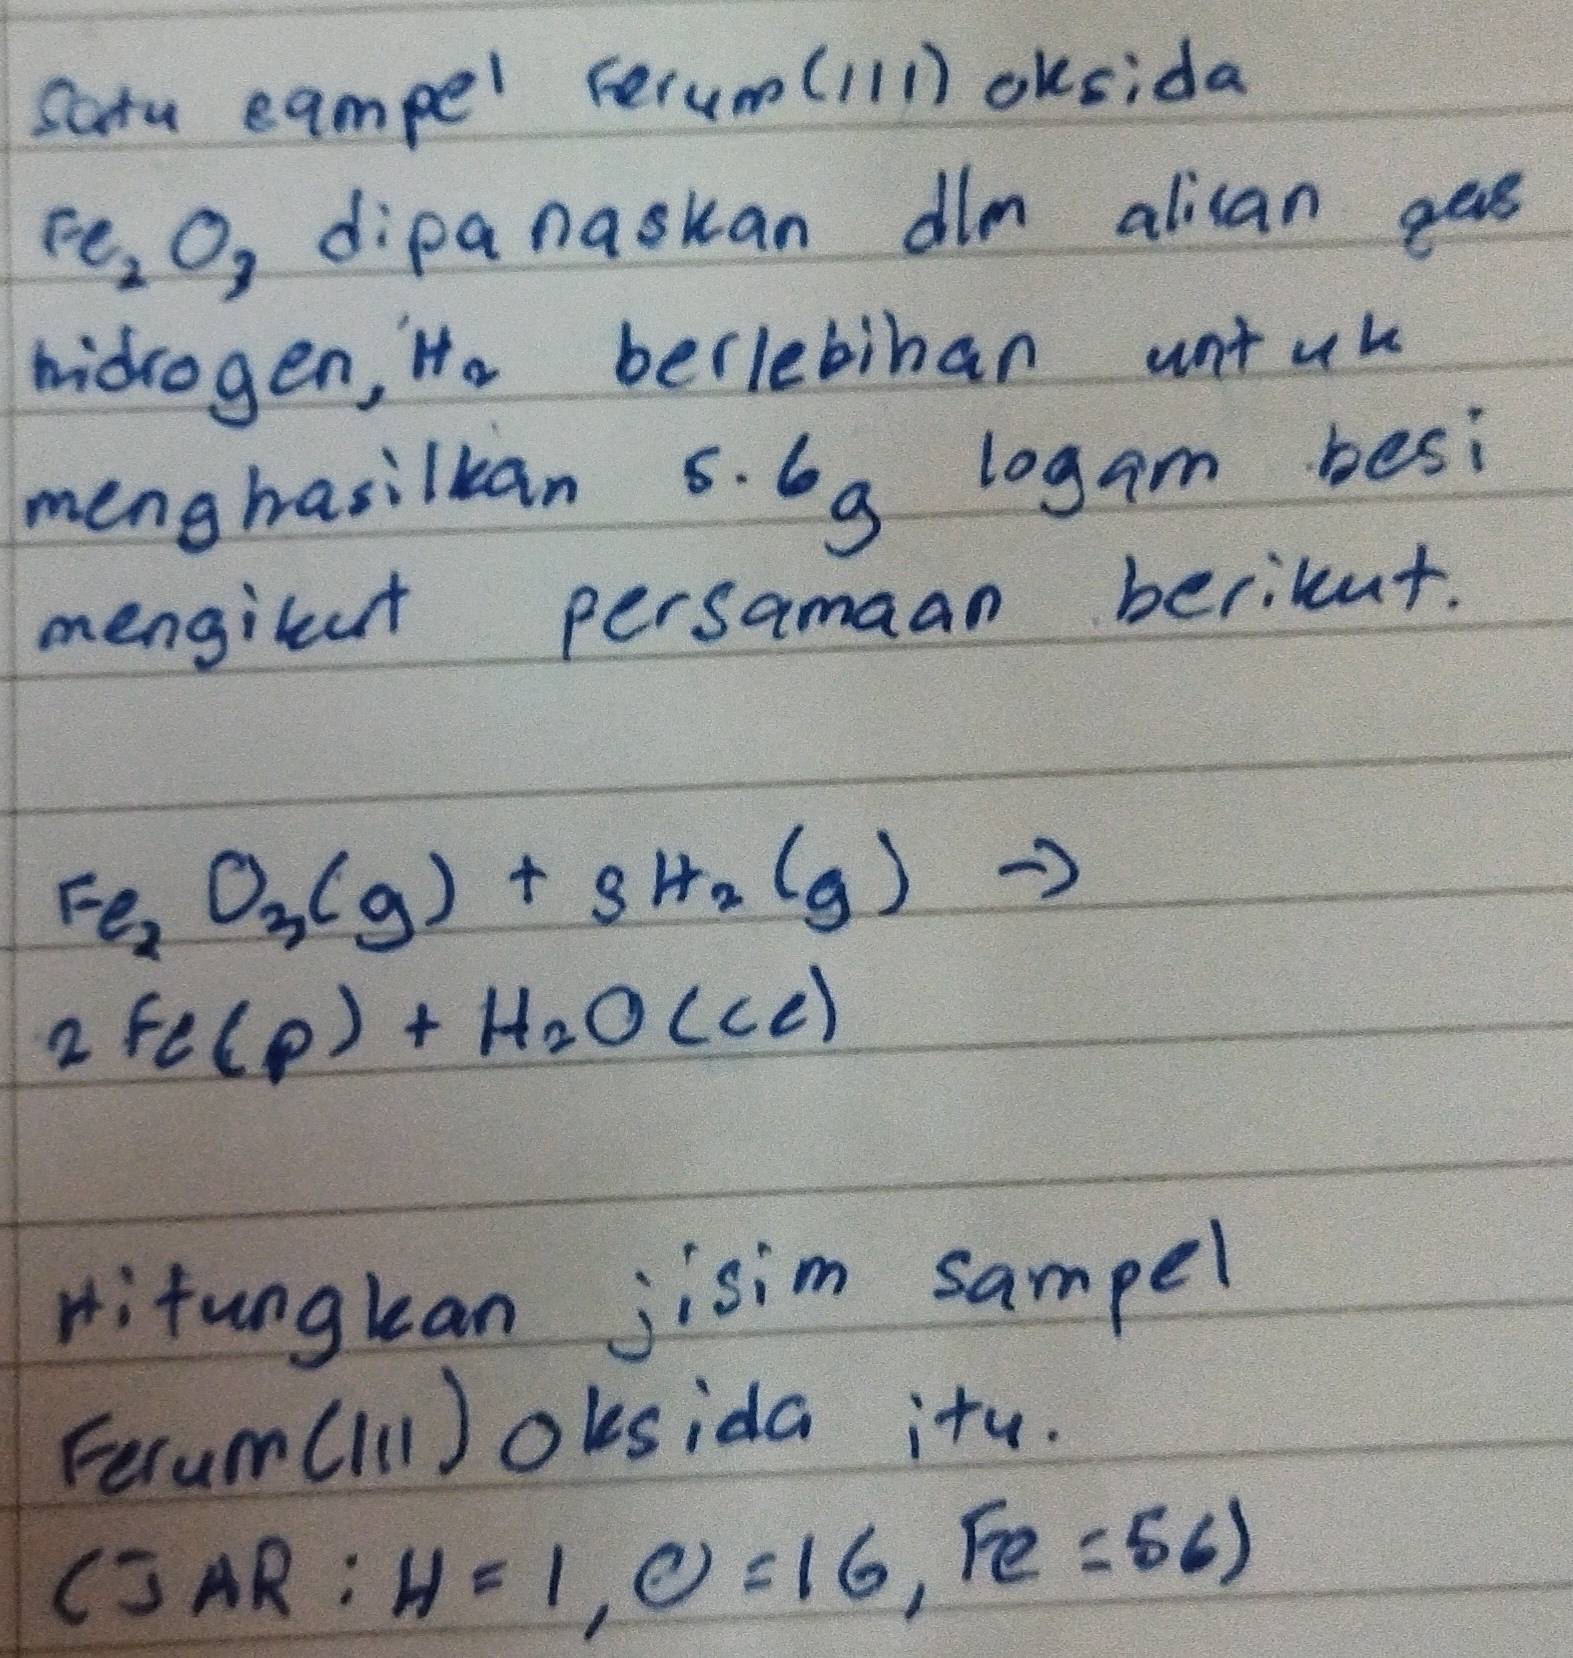 Satu sampel Ferum(III) oksida
Fe₂O₃ dipanaskan dlm aliran gas
hidrogen, H₂ berlebihan untuk
menghasilkan 5.6g logam besi
mengikut persamaan berikut.
Fe₂O₃(g) + 3H₂(g) →
2Fe(p) + H₂O(ce)
Hitungkan jisim sampel
Ferum(III) oksida itu.
(JAR : H = 1, O = 16, Fe = 56)